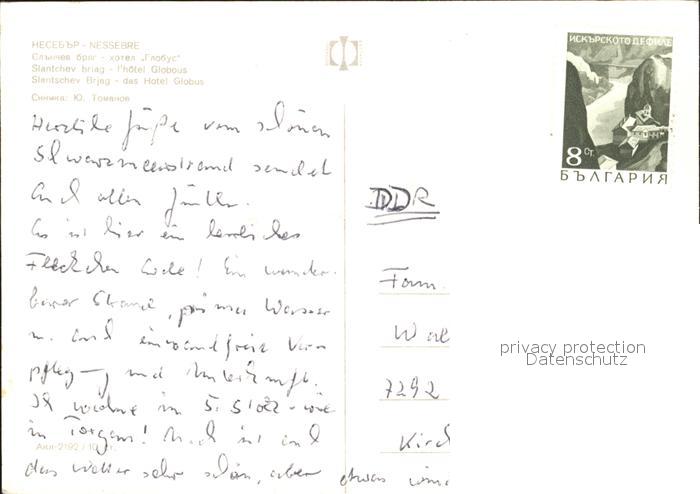 НЕСЕБЪР - NESSEBRE
Слънчев бряг - хотел „Глобус"
Slantchev briag - l'hôtel Globous
Slantschev Brjag - das Hotel Globus
Снимка: Ю. Томанов
Herzliche Grüße vom schönen
Schwarzmeerstrand sendet
Euch allen
Es ist hier ein herrliches
Fleckchen Erde! Ein wunder-
barer Strand, prima Wasser
u. auch einwandfreie Ver-
pflegung und Unterkunft.
Ich wohne im 5. Stock - wie
in Torgau! Auch ist
das Wetter sehr schön, aber etwas
ИСКЪРСКОТО ДЕФИЛЕ
8 СТ.
БЪЛГАРИЯ
DDR
Fam.
Wal
7292
Kirch
privacy protection
Datenschutz